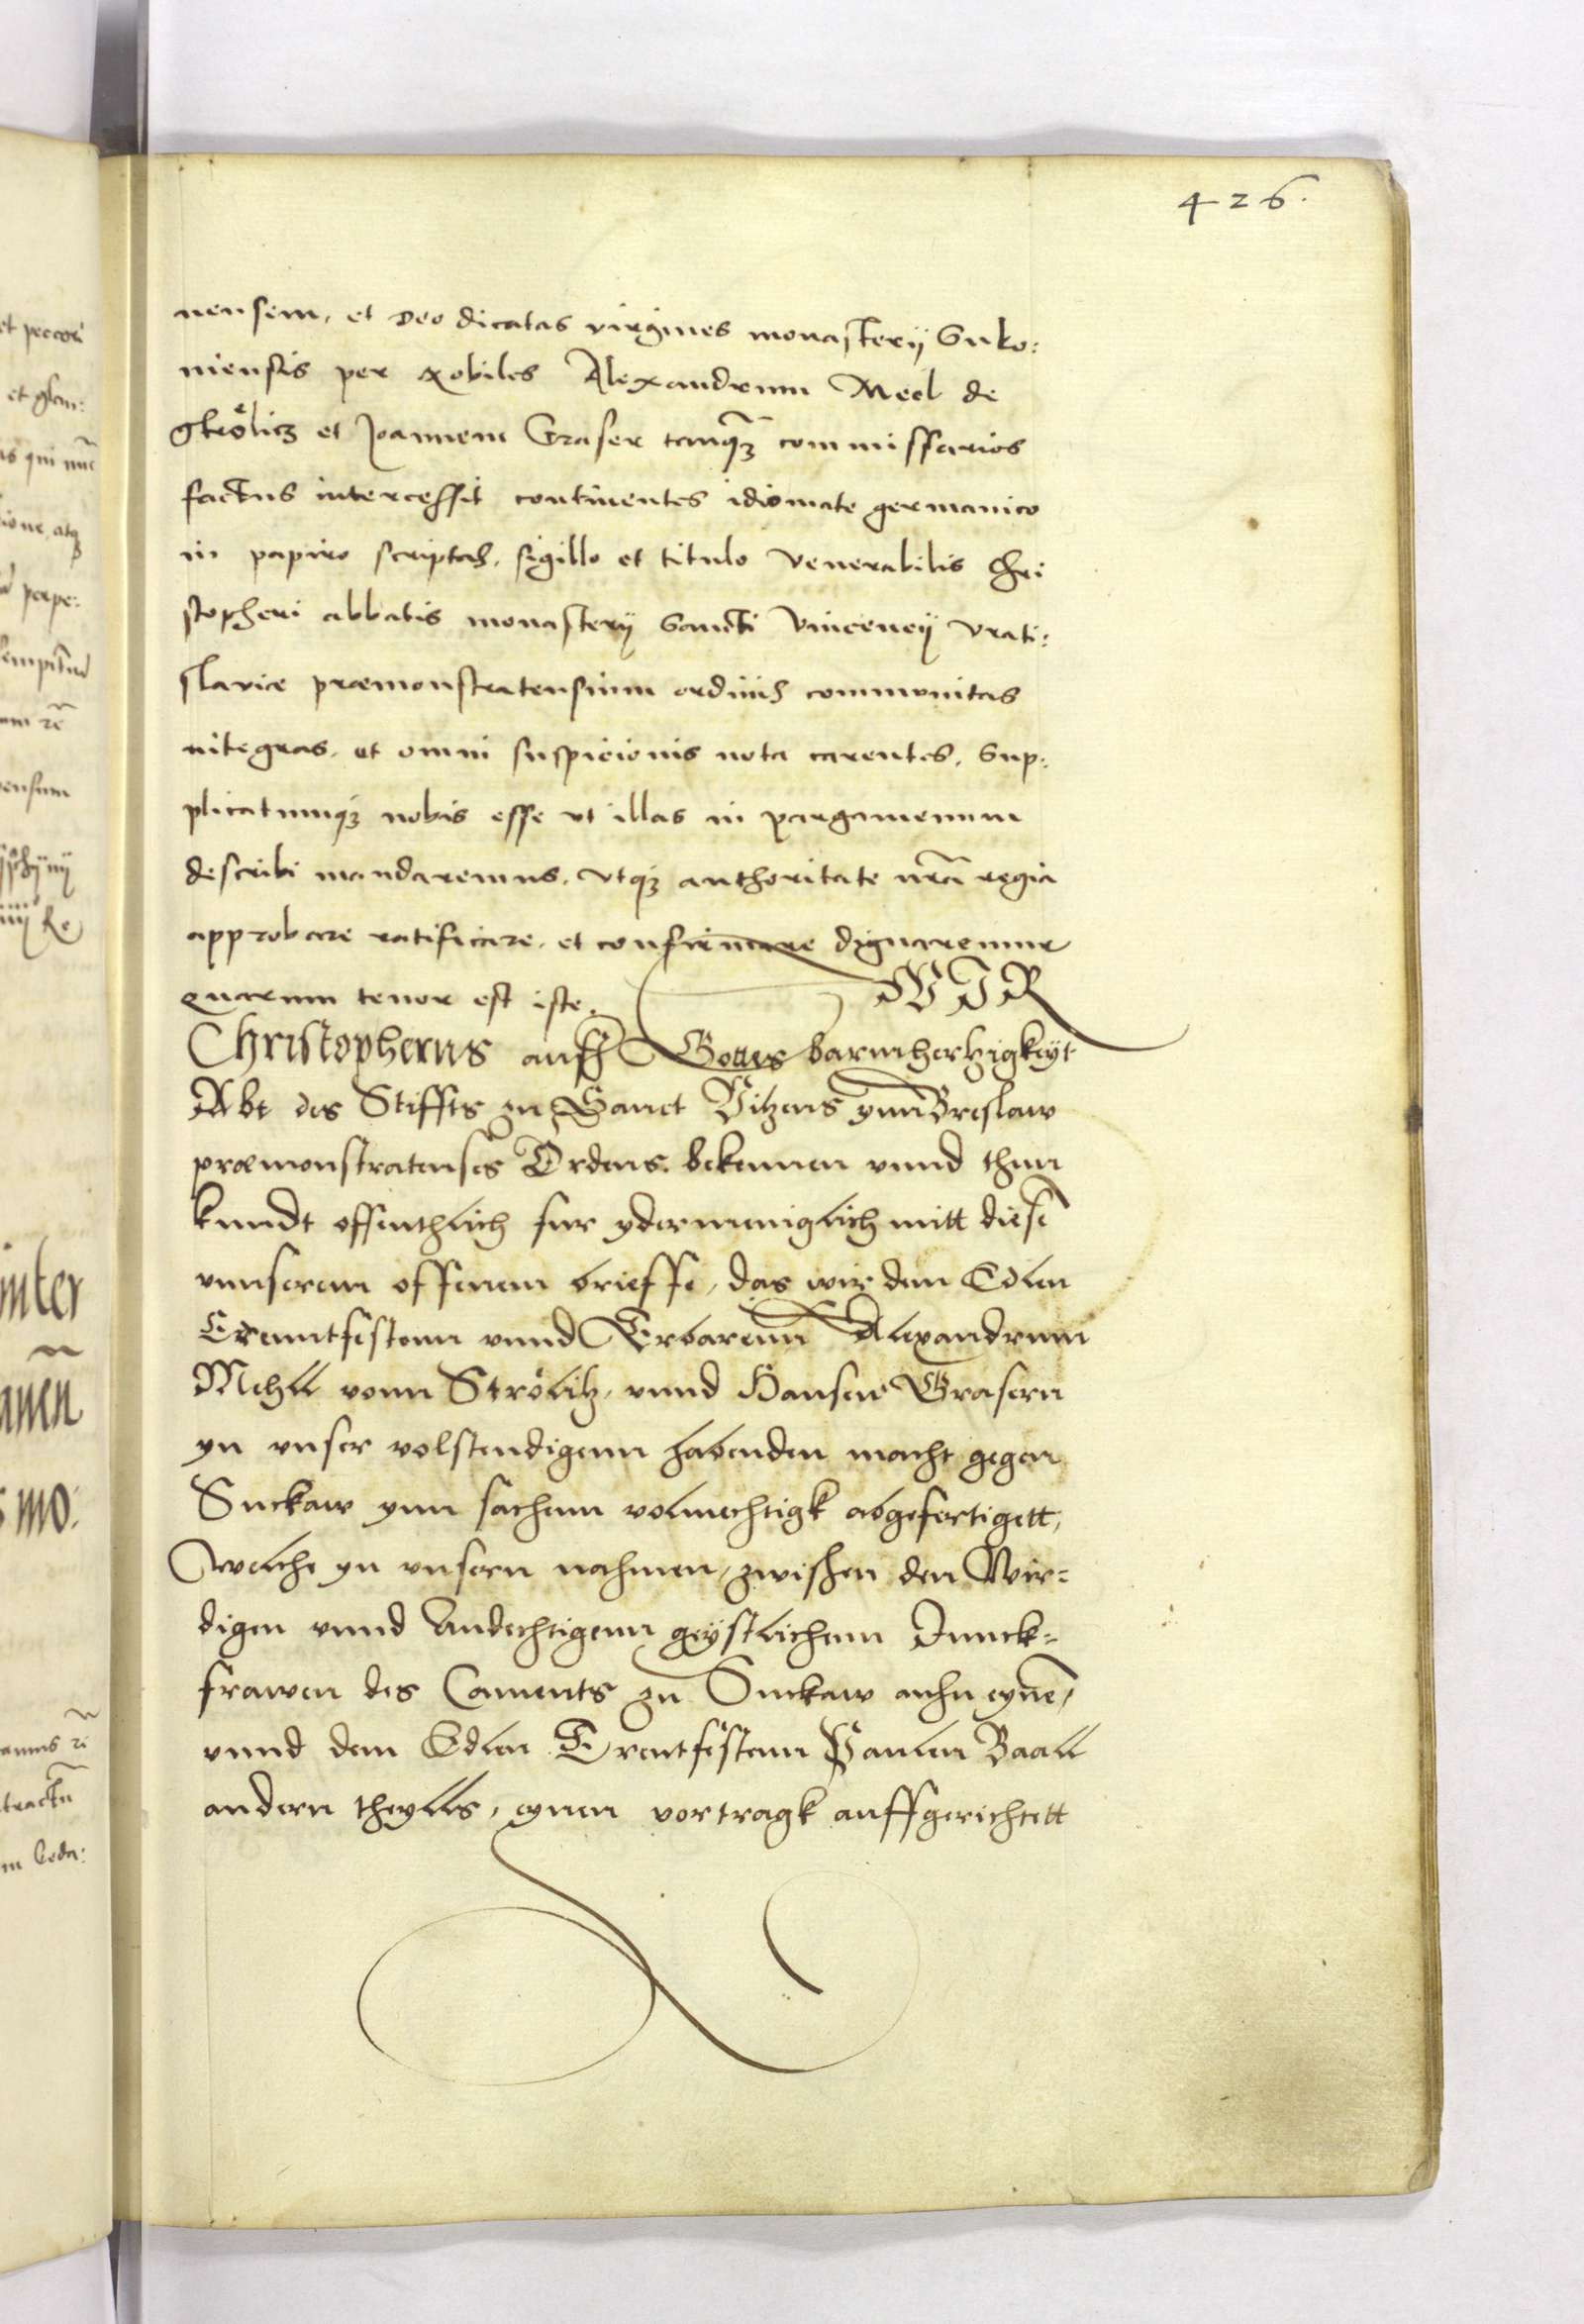 426.
nensem, et Deo dicatas virgines monasterÿ Suko:
niensis per Nobiles Alexandrum Meel de
Strölicz et Joannem Graser tanq̃ꝫ commissarios
factus intercessit continentes idiomate germanico
in papiro scriptas, sigillo et titulo Venerabilis Chri
stopheri abbatis monasterÿ Sancti Vincencÿ Vrati:
slaviæ præmonstratensium ordinis communitas
integras, et omni suspicionis nota carentes, Sup:
plicatumqꝫ nobis esse vt illas in pargamenum
describi mandaremus, vtqꝫ authoritate nr̃a regia
approbare ratificare, et confirmare dignaremur
quarum tenor est iste. WIR
Christopherus auss Gottes barmhertzigkeyt
Abt des Stiffts zu Sanct Vitzens ynn Breslaw
præmonstratenses Ordens, bekennen vnnd thun
kundt offenthlich fur ydermeniglich mitt diesẽ
vnnserem offenem brieffe, das wir den Edlen
Erenntfestenn vnnd Erbarenn Alexandrum
Mehll vonn Strölitz, vnnd Hansenn Grasern
yn vnser volstendigenn habenden macht gegen
Suckaw ynn sachenn volmechtigk abgefertigett,
Welche yn vnsern nahmen, zwischen den Wir=
digen vnnd Andechtigenn geÿstlichenn Junck=
frawen des Conuents zu Suckaw ahn eynẽ,
vnnd dem Edlen Erentfestenn Paulen Baall
andern theylls, eynen vortragk auffgerichtett
et peccori
et glan:
as qui nũc
ione, atqꝫ
perpe:
inter
mo:
tractũ